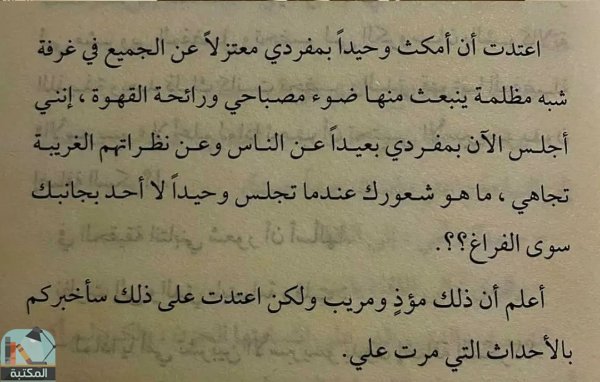 اعتدت أن أمكث وحيداً بمفردي معتزلاً عن الجميع في غرفة
شبه مظلمة ينبعث منها ضوء مصباحي ورائحة القهوة ، إنني
أجلس الآن بمفردي بعيداً عن الناس وعن نظراتهم الغريبة
تجاهي ، ما هو شعورك عندما تجلس وحيداً لا أحد بجانبك
سوى الفراغ؟؟.
أعلم أن ذلك مؤذٍ ومريب ولكن اعتدت على ذلك سأخبركم
بالأحداث التي مرت علي.
المكتبة